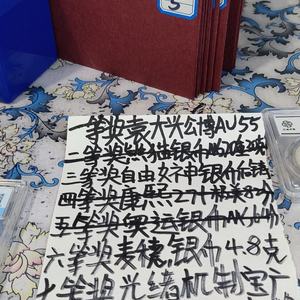 5
一等奖袁大头公博AU55
二等奖熊猫银币
三等奖自由女神银币
四等奖康熙27
五等奖奥运银币
六等奖麦穗银币4.8克
七等奖光绪机制宝广